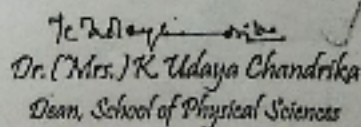 Dr. (Mrs.) K. Udaya Chandrika
Dean, School of Physical Sciences